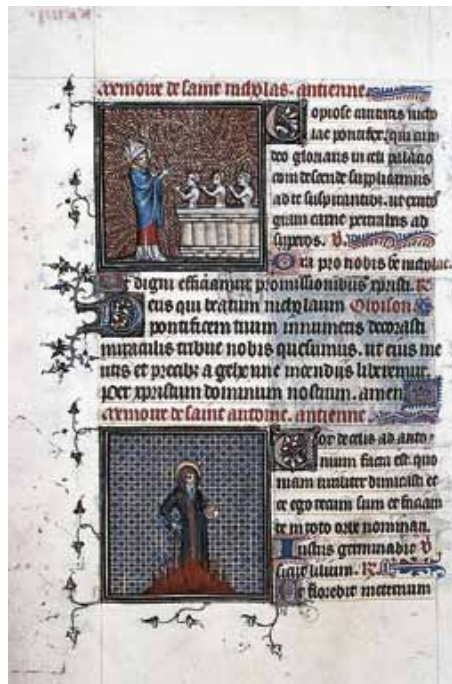 memoire de saint nicholas. antienne
Copiose caritatis nicho
lae pontifex, qui cum
deo gloriaris in celi palacio
condescende supplicamus
ad te suspirantibus. ut exutos
gravi carne pertrahas ad
superos. V.
Ora pro nobis be nicholae.
Ut digni efficiamur promissionibus xpristi. R
Deus qui beatum nicholaum Oroison
pontificem tuum innumeris decorasti
miraculis tribue nobis quesumus. ut eius me
ritis et precibus a gehenne incendijs liberemur.
per xpristum dominum nostrum. amen
memoire de saint antoine. antienne
Vox de celis ad anto
nium facta est. quo
niam viriliter dimicasti et
ce ego tecum sum et faciam
te in toto orbe nominari.
Iustus germinabit V
sicut lilium. R.
Et florebit in eternum